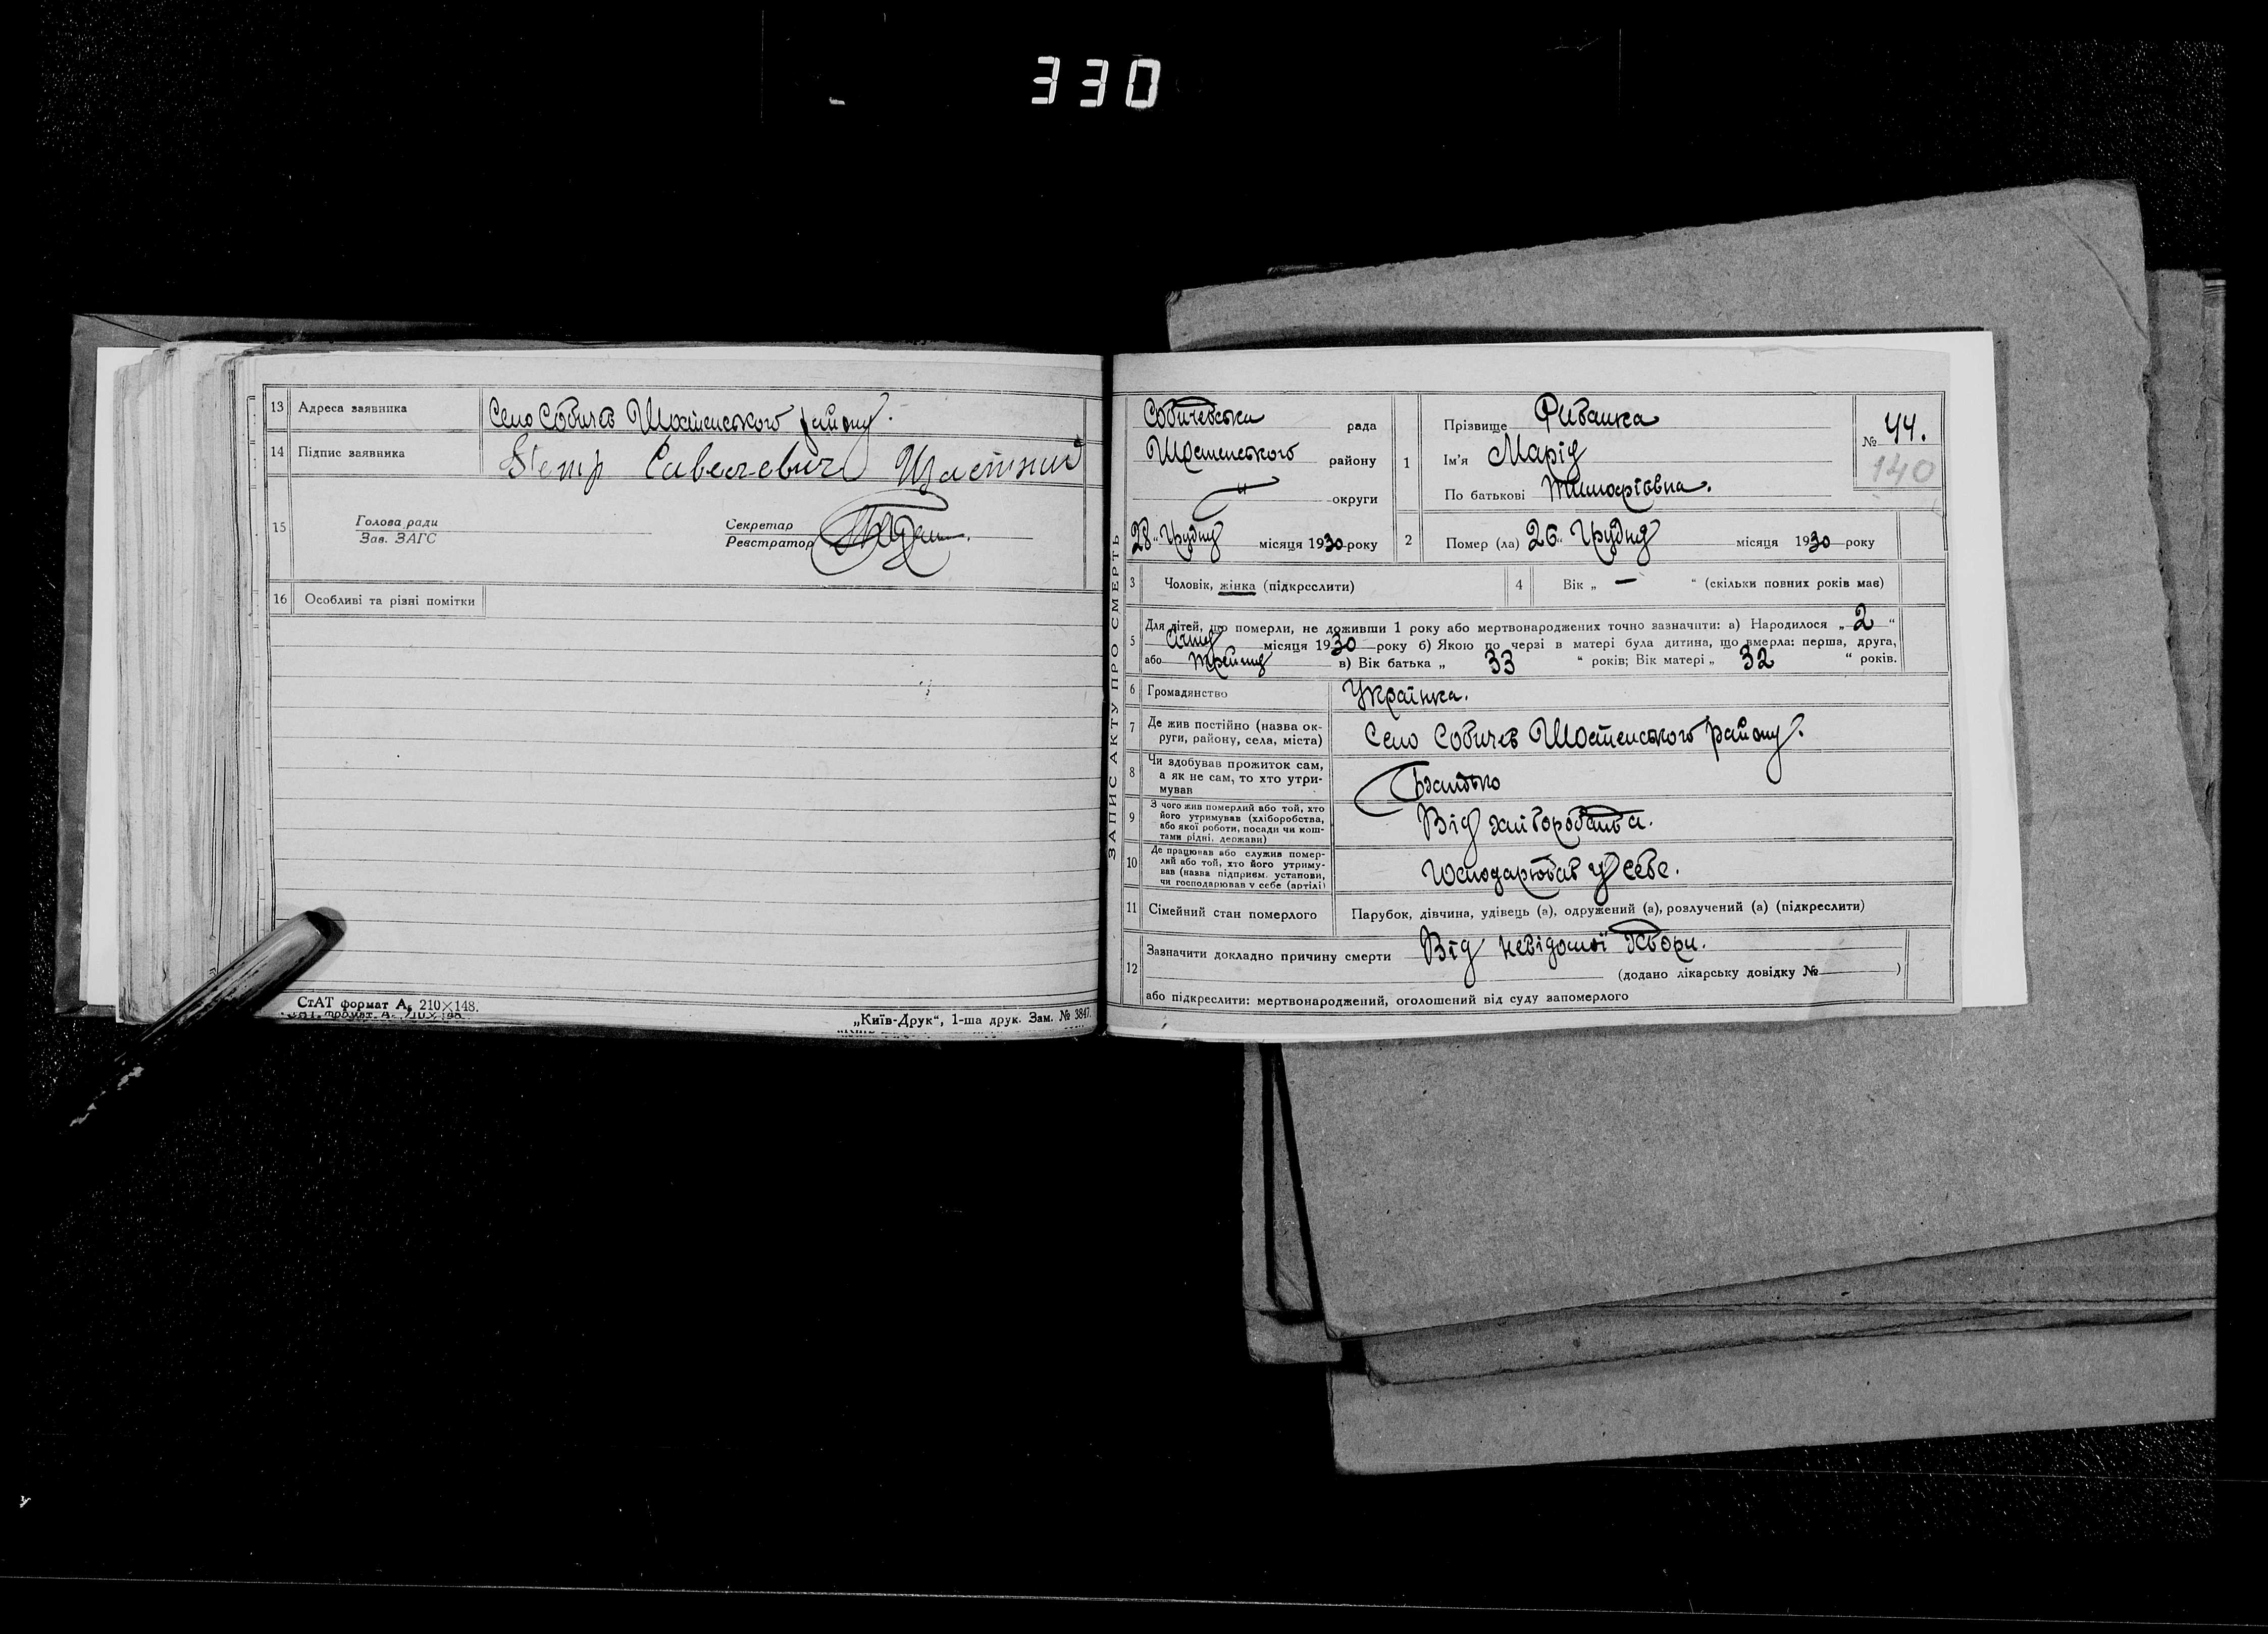 330
13 Адреса заявника Село Собичев Шостенського району.
14 Підпис заявника Петр Савелевич
15 Голова ради Секретар
Зав. ЗАГС Реєстратор
16 Особливі та різні помітки
СтАТ формат А₅ 210×148.
„Київ-Друк“, 1-ша друк. Зам. № 3847.
ЗАПИС АКТУ ПРО СМЕРТЬ
Собичевська рада
Шостенського району
округи
28 „Грудня місяця 1930 року
1 Прізвище
Ім'я Марія
По батькові
№ 44.
140
2 Помер (ла) 26 „ Грудня місяця 1930 року
3 Чоловік, жінка (підкреслити)
4 Вік „ — “ (скільки повних років має)
5 Для дітей, що померли, не доживши 1 року або мертвонароджених точно зазначити: а) Народилося „ 2 “
Січня місяця 1930 року б) Якою по черзі в матері була дитина, що вмерла: перша, друга,
або в) Вік батька „ 33 “ років; Вік матері „ 32 “ років.
6 Громадянство Українка.
7 Де жив постійно (назва ок-
руги, району, села, міста) Село Собичев Шостенського району.
8 Чи здобував прожиток сам,
а як не сам, то хто утри-
мував Батько
9 З чого жив померлий або той, хто
його утримував (хліборобства,
або якої роботи, посади чи кош-
тами рідні, держави) Від хлібороБства.
10 Де працював або служив помер-
лий або той, хто його утриму-
вав (назва підприєм. установи,
чи господарював у себе (артілі) Господарював у себе.
11 Сімейний стан померлого Парубок, дівчина, удівець (а), одружений (а), розлучений (а) (підкреслити)
12 Зазначити докладно причину смерти Від невідомої хвори.
(додано лікарську довідку № )
або підкреслити: мертвонароджений, оголошений від суду запомерлого